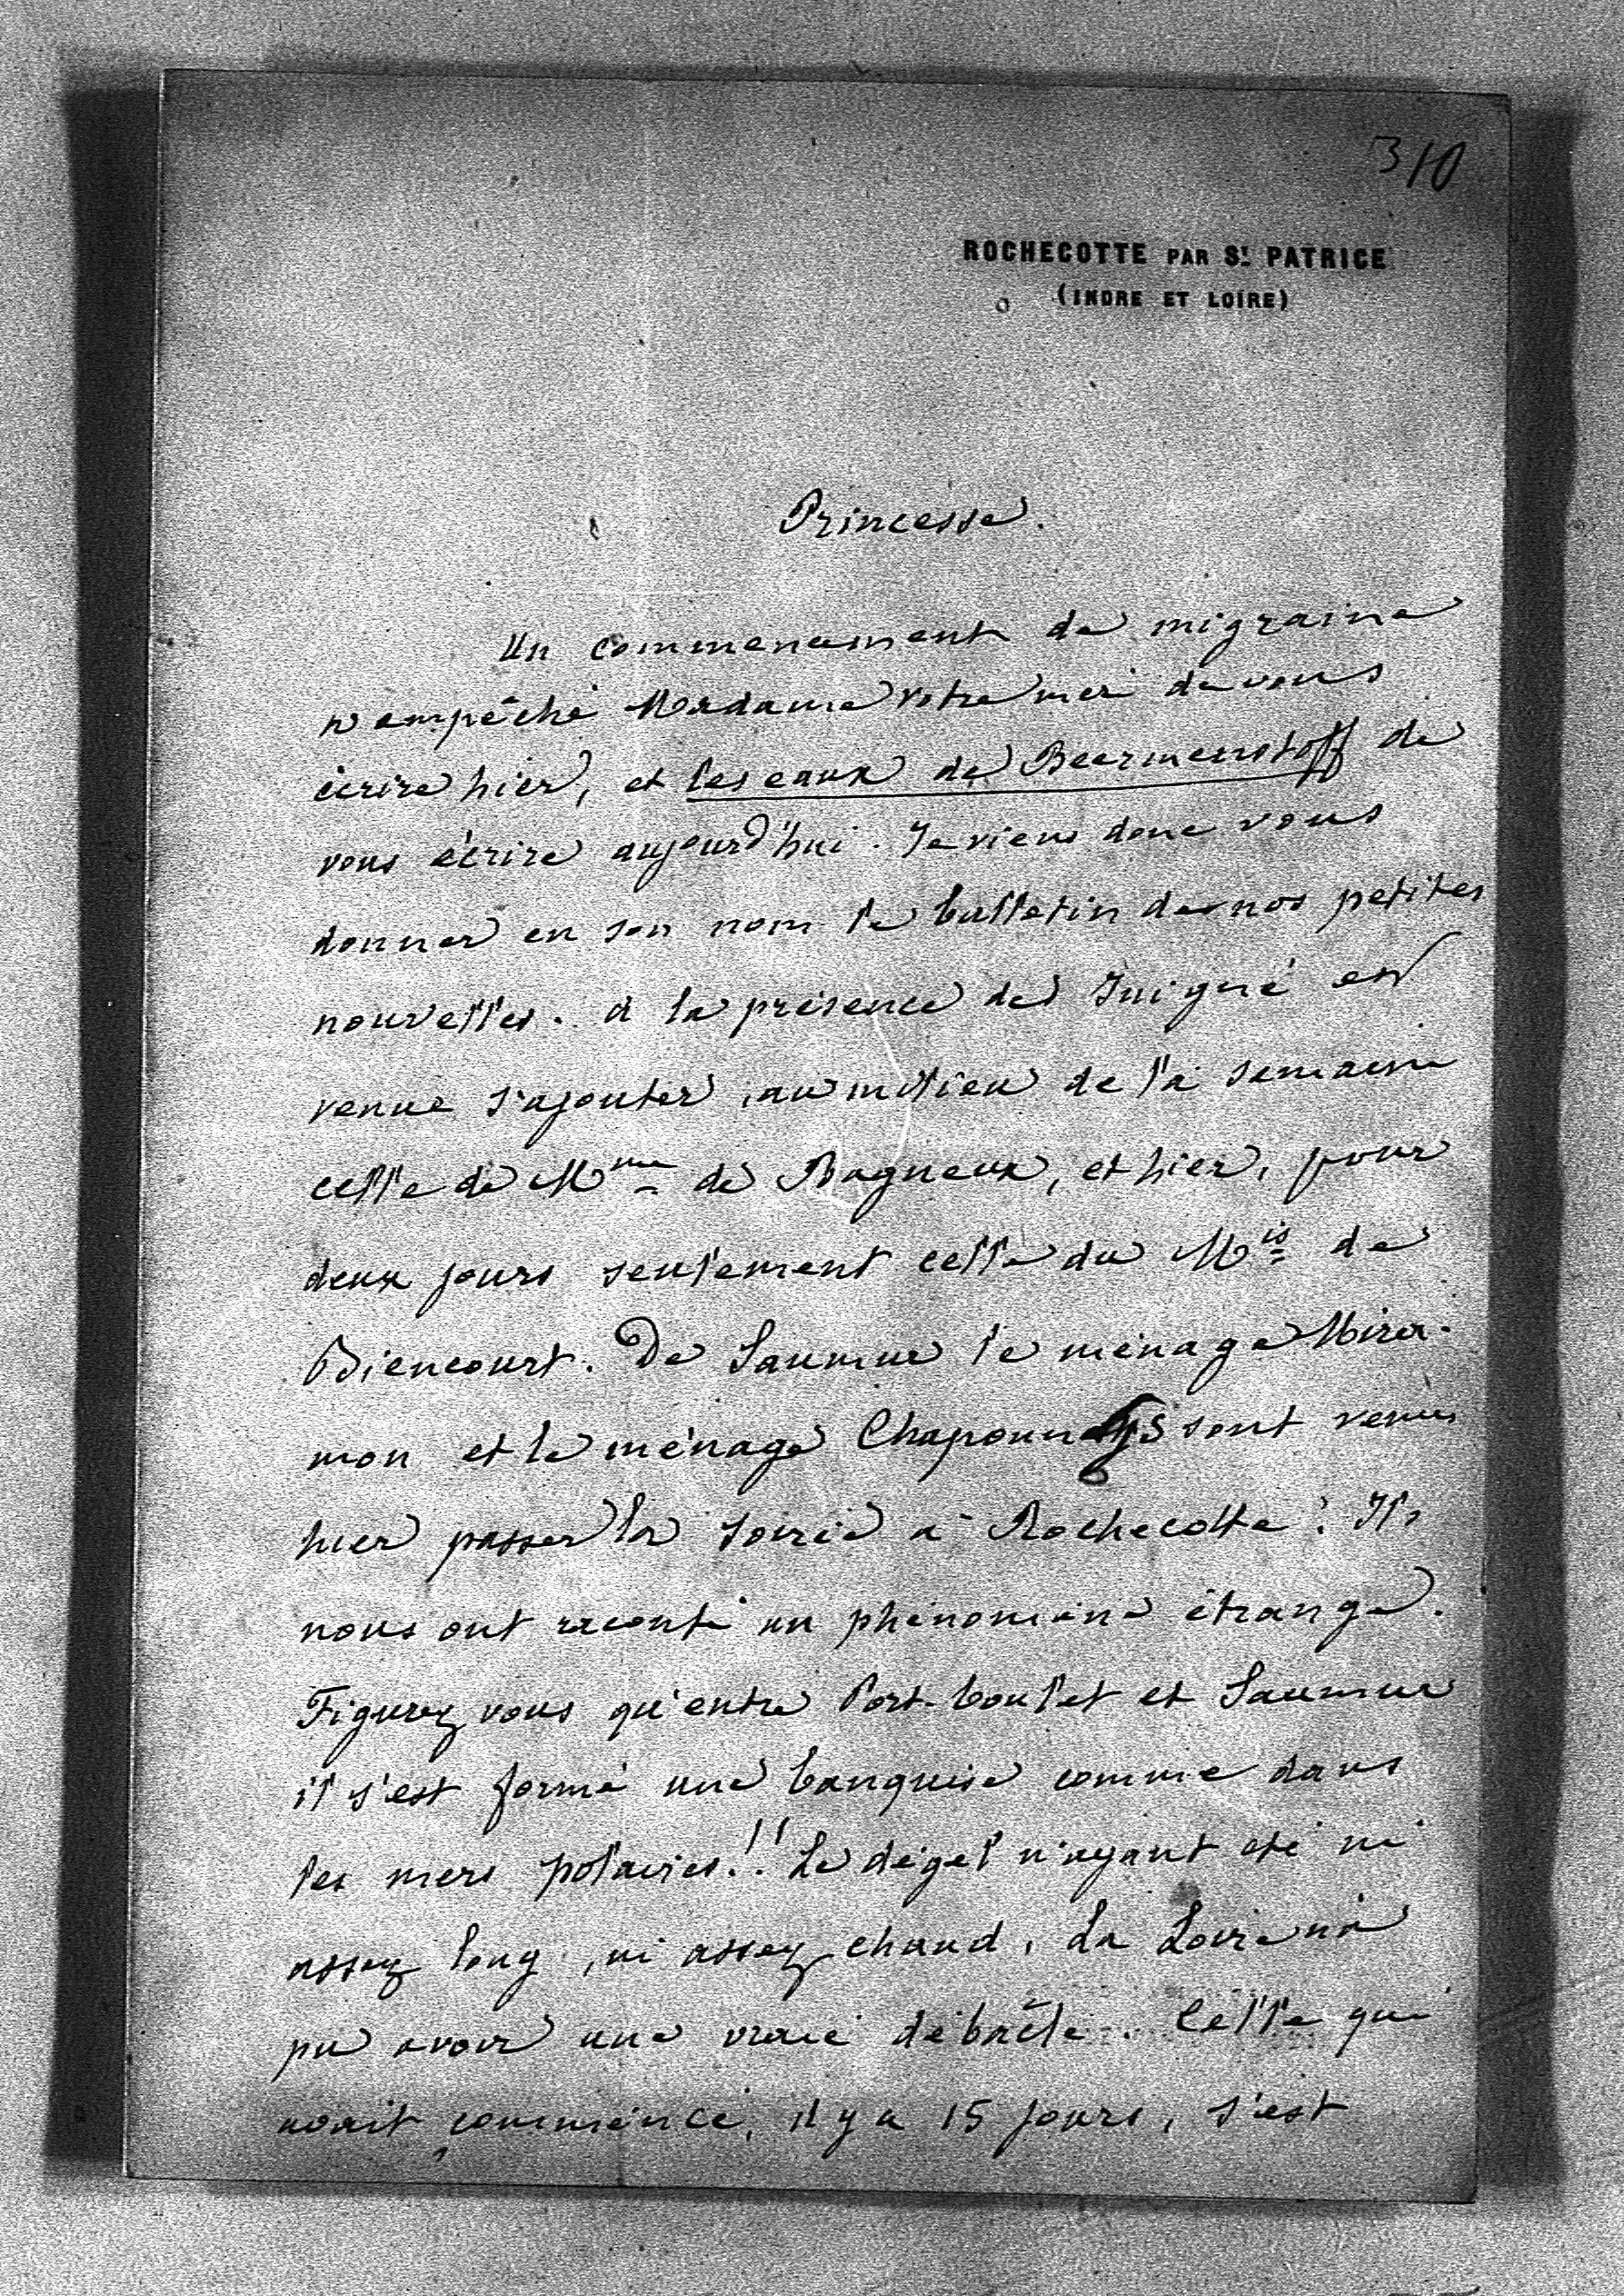 310
ROCHECOTTE PAR St PATRICE
(INDRE ET LOIRE)
Princesse.
Un commencement de migraine
n empêché Madame votre mère de vous
écrire hier, et les eaux de Beermenstoff de
vous écrire aujourd'hui. Je viens donc vous
donner en son nom le bulletin de nos petites
nouvelles. à la présence des Juigné est
venue s'ajouter, au milieu de la semaine
celle de Mme de Bagneux, et hier, pour
deux jours seulement celle du Mis de
Biencourt. De Saumur le ménage Mira-
mon et le ménage Chaponnays sont venus
hier passer la soirée à Rochecotte. Ils
nous ont raconté un phénomène étrange.
Figurez vous qu'entre Port-boulet et Saumur
il s'est formé une banquise comme dans
les mers polaires!! Le dégel n'ayant été ni
assez long, ni assez chaud, La Loire n'a
pu avoir une vraie débâcle. Celle qui
avait commencé, il y a 15 jours, s'est